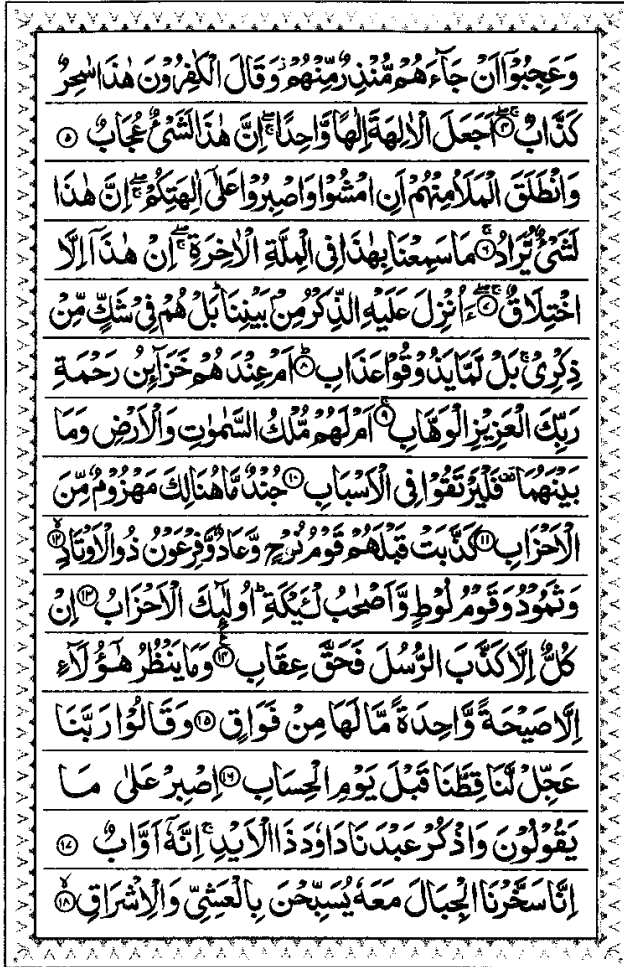 وَعَجِبُوْۤا اَنْ جَآءَهُمْ مُّنْذِرٌ مِّنْهُمْ ؗ وَقَالَ الْكٰفِرُوْنَ هٰذَا سٰحِرٌ
كَذَّابٌ ۖۚ ﴿۴﴾ اَجَعَلَ الْاٰلِهَةَ اِلٰهًا وَّاحِدًا ۖۚ اِنَّ هٰذَا لَشَیْءٌ عُجَابٌ ﴿۵﴾
وَانْطَلَقَ الْمَلَاُ مِنْهُمْ اَنِ امْشُوْا وَاصْبِرُوْا عَلٰۤی اٰلِهَتِكُمْ ۖۚ اِنَّ هٰذَا
لَشَیْءٌ یُّرَادُ ۚ ﴿۶﴾ مَا سَمِعْنَا بِهٰذَا فِی الْمِلَّةِ الْاٰخِرَةِ ۖۚ اِنْ هٰذَاۤ اِلَّا
اخْتِلَاقٌ ۖۚ ﴿۷﴾ ءَاُنْزِلَ عَلَیْهِ الذِّكْرُ مِنْۢ بَیْنِنَا ؕ بَلْ هُمْ فِیْ شَكٍّ مِّنْ
ذِكْرِیْ ۚ بَلْ لَّمَّا یَذُوْقُوْا عَذَابِ ؕ ﴿۸﴾ اَمْ عِنْدَهُمْ خَزَآىِٕنُ رَحْمَةِ
رَبِّكَ الْعَزِیْزِ الْوَهَّابِ ۚ ﴿۹﴾ اَمْ لَهُمْ مُّلْكُ السَّمٰوٰتِ وَالْاَرْضِ وَمَا
بَیْنَهُمَا ۫ فَلْیَرْتَقُوْا فِی الْاَسْبَابِ ﴿۱۰﴾ جُنْدٌ مَّا هُنَالِكَ مَهْزُوْمٌ مِّنَ
الْاَحْزَابِ ﴿۱۱﴾ كَذَّبَتْ قَبْلَهُمْ قَوْمُ نُوْحٍ وَّعَادٌ وَّفِرْعَوْنُ ذُو الْاَوْتَادِ ۙ ﴿۱۲﴾
وَثَمُوْدُ وَقَوْمُ لُوْطٍ وَّاَصْحٰبُ لْـَٔیْكَةِ ؕ اُولٰٓىِٕكَ الْاَحْزَابُ ﴿۱۳﴾ اِنْ
كُلٌّ اِلَّا كَذَّبَ الرُّسُلَ فَحَقَّ عِقَابِ ۠ ﴿۱۴﴾ وَمَا یَنْظُرُ هٰۤؤُلَآءِ
اِلَّا صَیْحَةً وَّاحِدَةً مَّا لَهَا مِنْ فَوَاقٍ ﴿۱۵﴾ وَقَالُوْا رَبَّنَا
عَجِّلْ لَّنَا قِطَّنَا قَبْلَ یَوْمِ الْحِسَابِ ﴿۱۶﴾ اِصْبِرْ عَلٰی مَا
یَقُوْلُوْنَ وَاذْكُرْ عَبْدَنَا دَاوٗدَ ذَا الْاَیْدِ ۚ اِنَّهٗۤ اَوَّابٌ ﴿۱۷﴾
اِنَّا سَخَّرْنَا الْجِبَالَ مَعَهٗ یُسَبِّحْنَ بِالْعَشِیِّ وَالْاِشْرَاقِ ۙ ﴿۱۸﴾